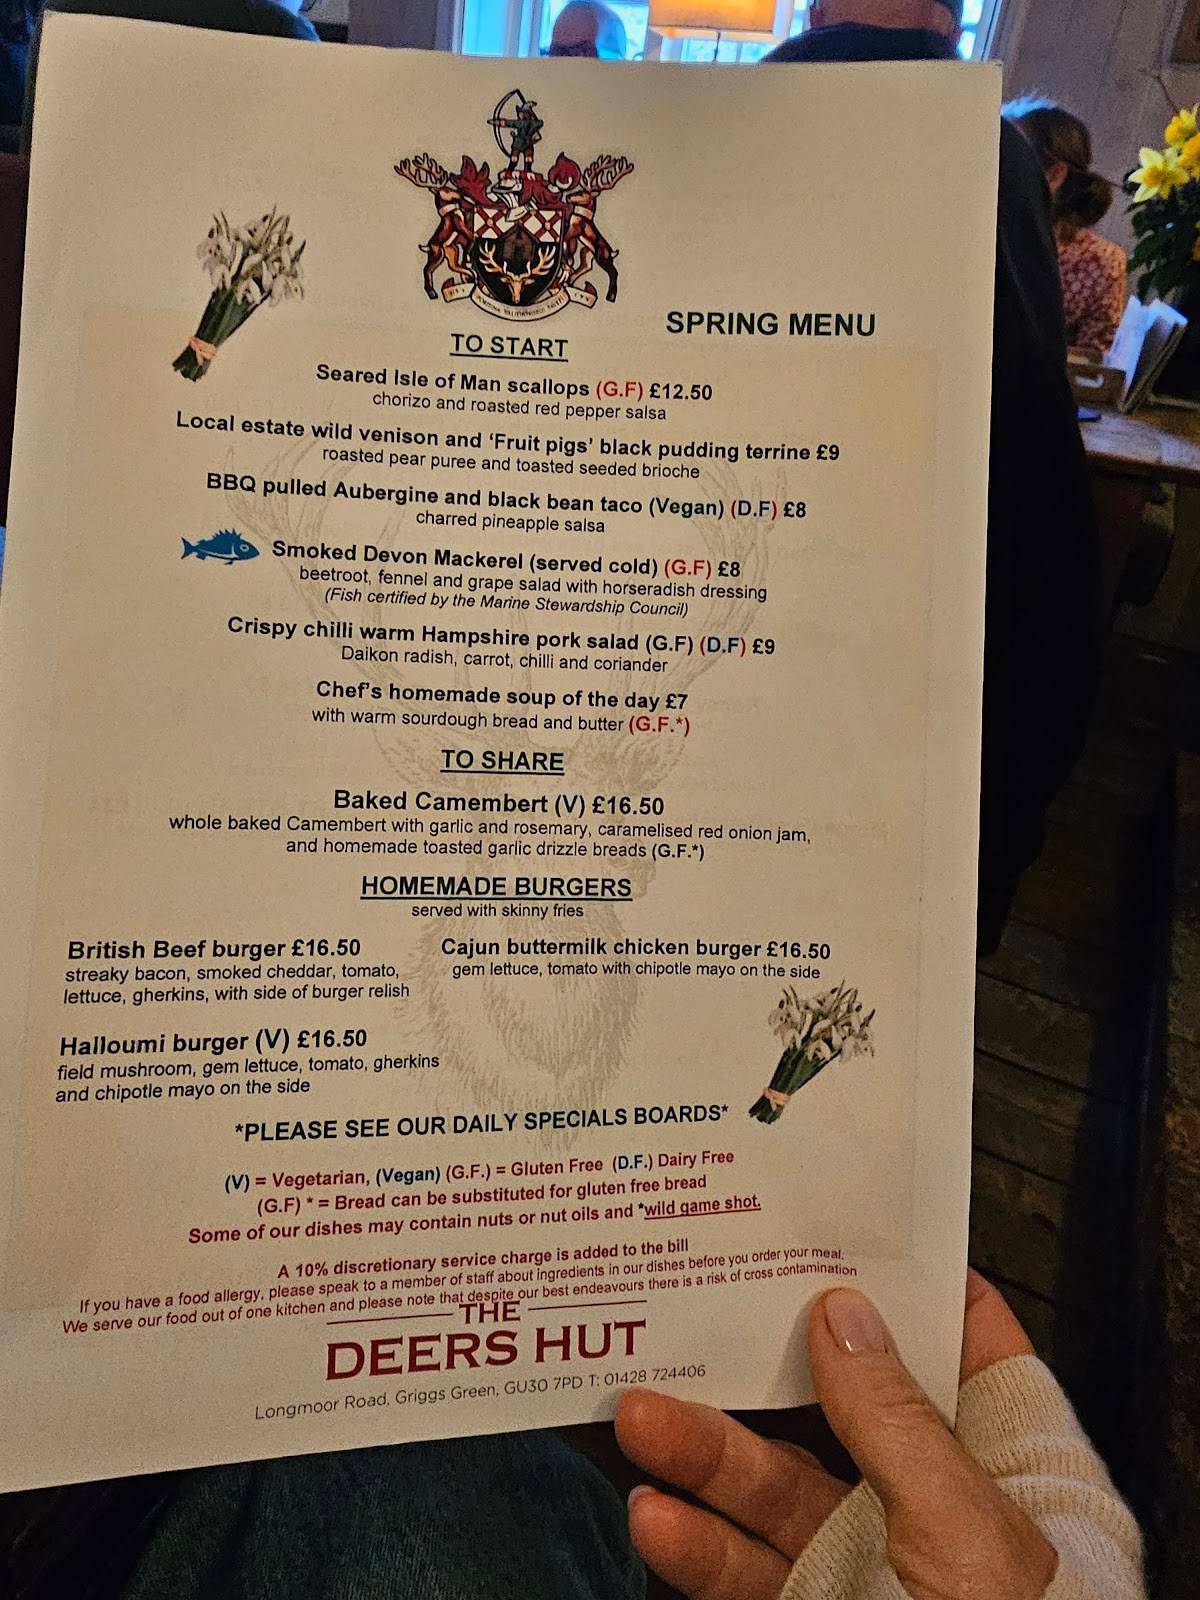 SPRING MENU
TO START
Seared Isle of Man scallops (G.F) £12.50
chorizo and roasted red pepper salsa
Local estate wild venison and ‘Fruit pigs’ black pudding terrine £9
roasted pear puree and toasted seeded brioche
BBQ pulled Aubergine and black bean taco (Vegan) (D.F) £8
charred pineapple salsa
Smoked Devon Mackerel (served cold) (G.F) £8
beetroot, fennel and grape salad with horseradish dressing
(Fish certified by the Marine Stewardship Council)
Crispy chilli warm Hampshire pork salad (G.F) (D.F) £9
Daikon radish, carrot, chilli and coriander
Chef's homemade soup of the day £7
with warm sourdough bread and butter (G.F.*)
TO SHARE
Baked Camembert (V) £16.50
whole baked Camembert with garlic and rosemary, caramelised red onion jam,
and homemade toasted garlic drizzle breads (G.F.*)
HOMEMADE BURGERS
served with skinny fries
British Beef burger £16.50
streaky bacon, smoked cheddar, tomato,
lettuce, gherkins, with side of burger relish
Cajun buttermilk chicken burger £16.50
gem lettuce, tomato with chipotle mayo on the side
Halloumi burger (V) £16.50
field mushroom, gem lettuce, tomato, gherkins
and chipotle mayo on the side
*PLEASE SEE OUR DAILY SPECIALS BOARDS*
(V) = Vegetarian, (Vegan) (G.F.) = Gluten Free (D.F.) Dairy Free
(G.F) * = Bread can be substituted for gluten free bread
Some of our dishes may contain nuts or nut oils and *wild game shot.
A 10% discretionary service charge is added to the bill
If you have a food allergy, please speak to a member of staff about ingredients in our dishes before you order your meal.
We serve our food out of one kitchen and please note that despite our best endeavours there is a risk of cross contamination
THE
DEERS HUT
Longmoor Road, Griggs Green, GU30 7PD T: 01428 724406